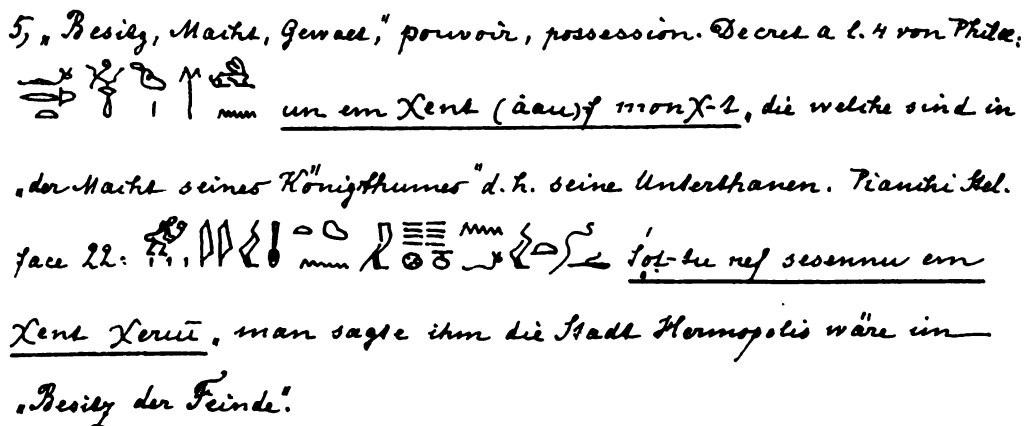 5, „Besitz, Macht, Gewalt," pouvoir, possession. Decret a l. 4 von Philæ:
un em χent (àau)f monχ-t, die welche sind in
„der Macht seines Königthumes" d. h. seine Unterthanen. Pianchi Stel.
face 22: tu nef sesennu em
χent χeruū, man sagte ihm die Stadt Hermopolis wäre im
„Besitz der Feinde".